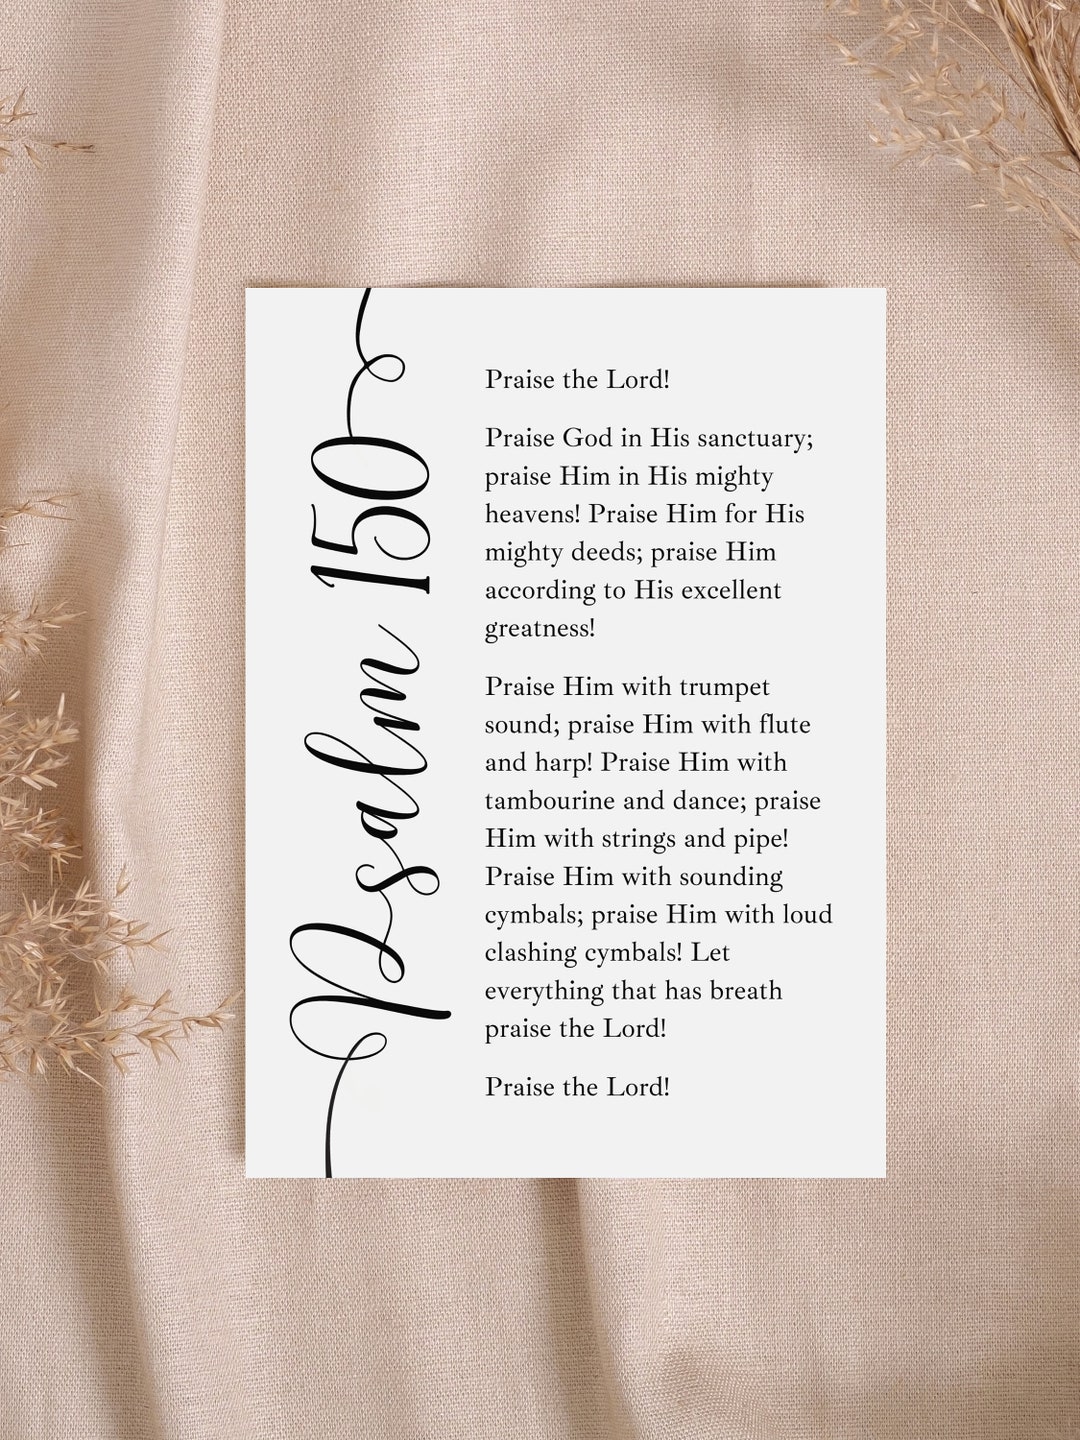 Psalm 150
Praise the Lord!
Praise God in His sanctuary;
praise Him in His mighty
heavens! Praise Him for His
mighty deeds; praise Him
according to His excellent
greatness!
Praise Him with trumpet
sound; praise Him with flute
and harp! Praise Him with
tambourine and dance; praise
Him with strings and pipe!
Praise Him with sounding
cymbals; praise Him with loud
clashing cymbals! Let
everything that has breath
praise the Lord!
Praise the Lord!